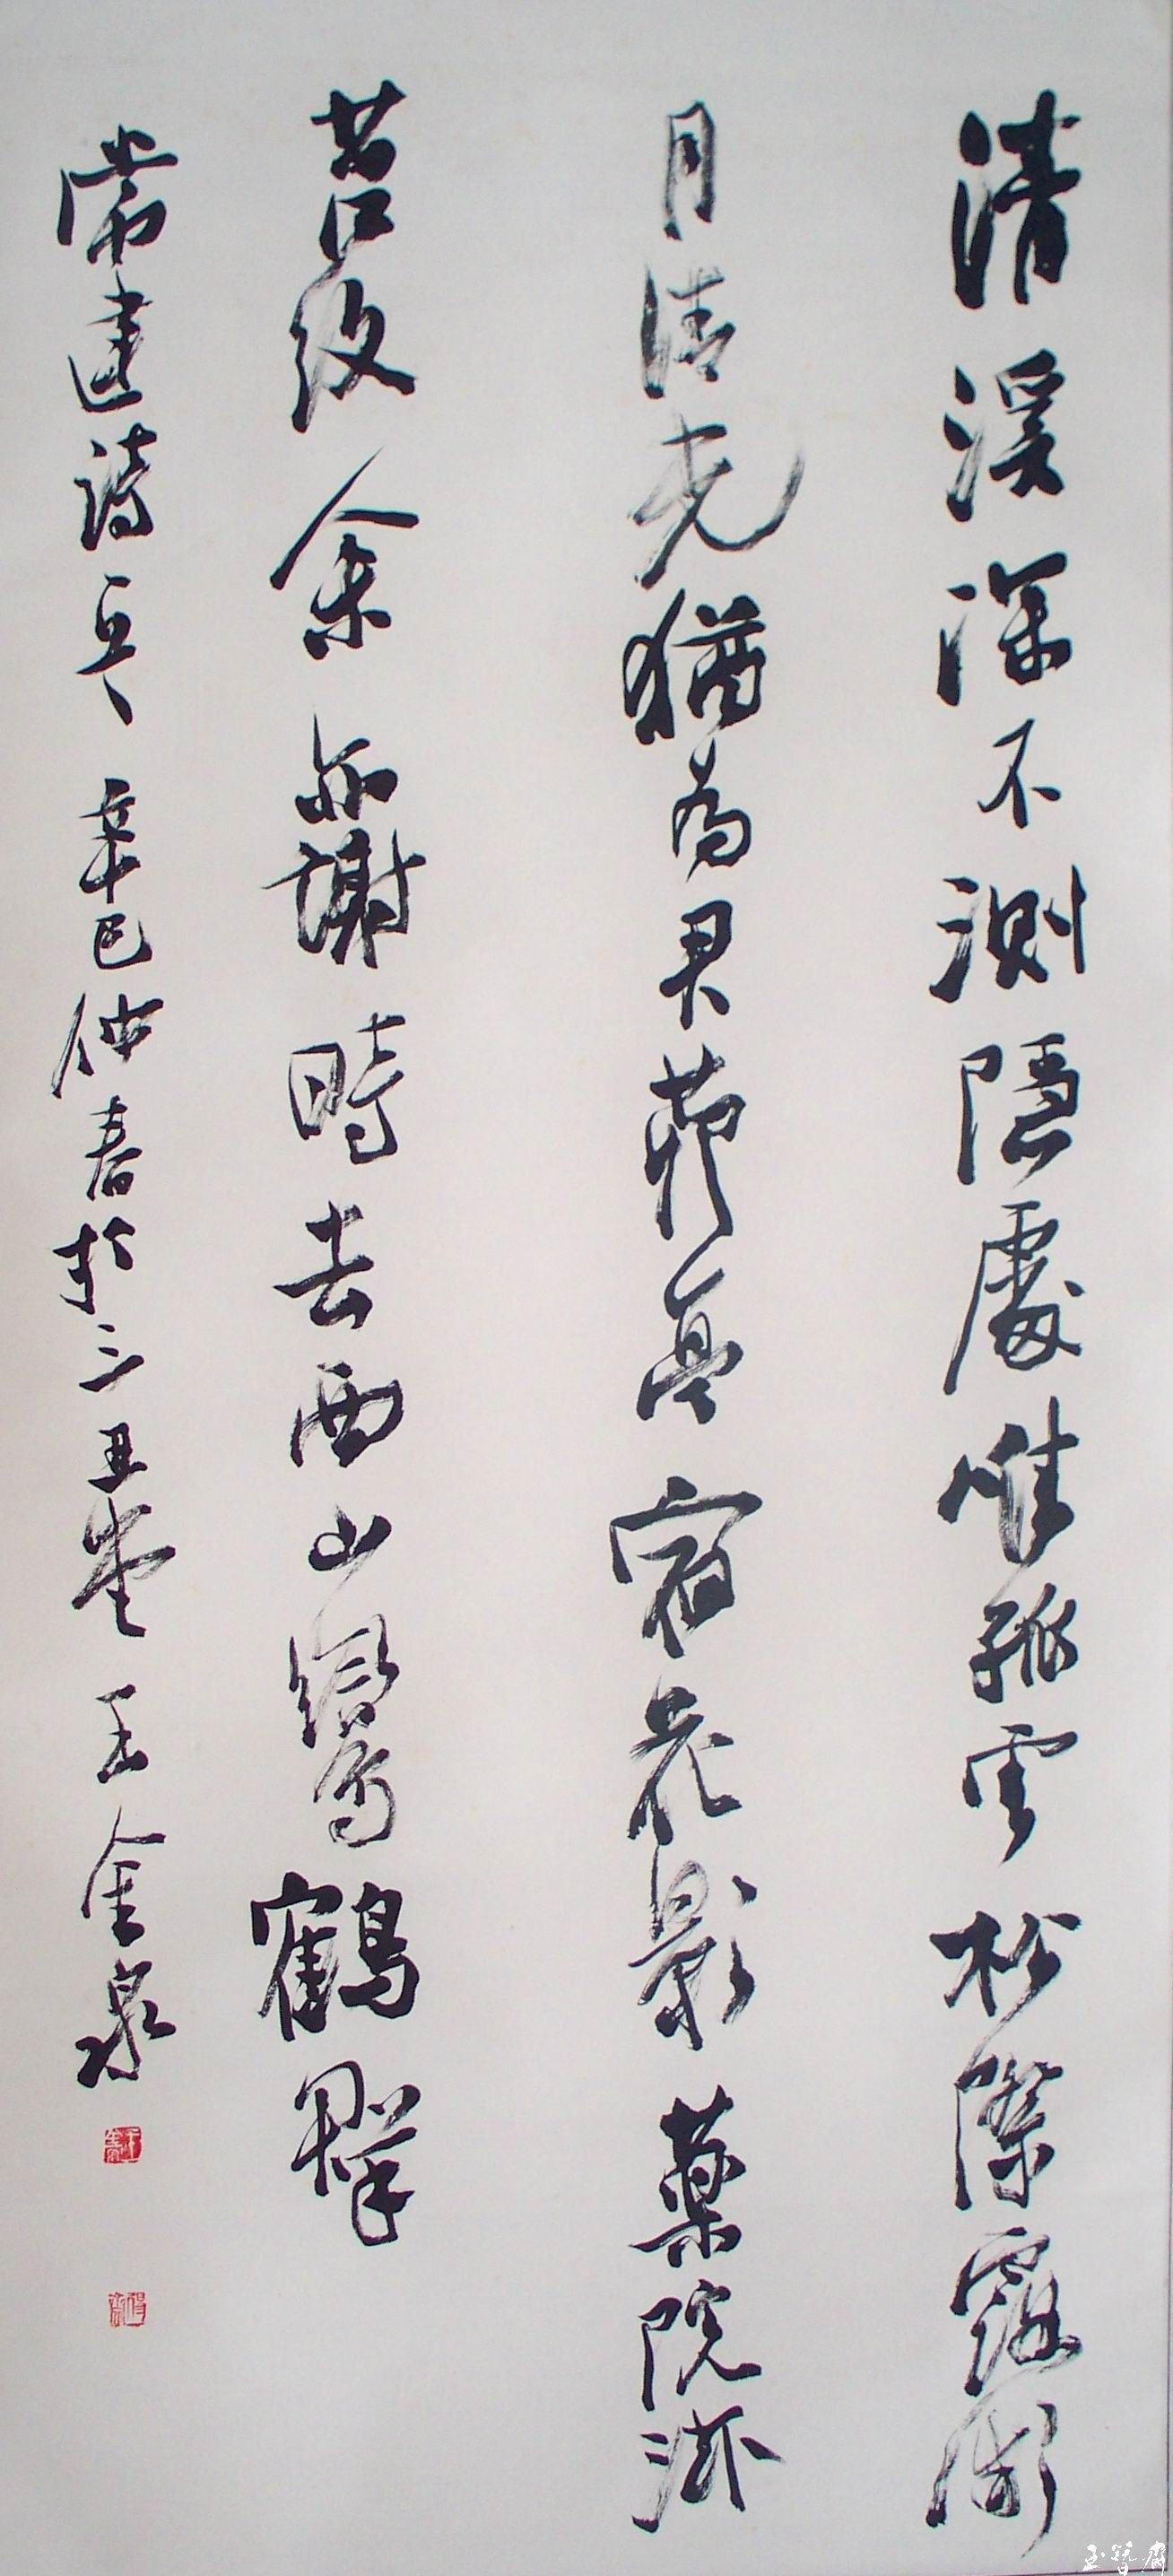 清溪深不測隱處唯孤雲松際露微
月清光猶為君茆亭宿花影藥院滋
苔紋余亦謝時去西山鸞鶴群
常建詩一首 辛巳仲春於三丑堂 王金泉